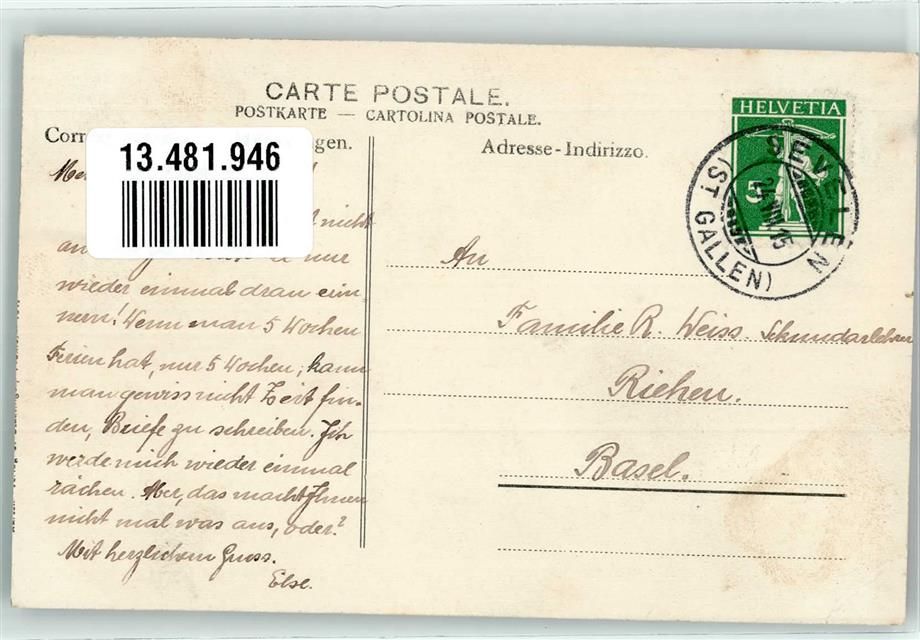 CARTE POSTALE.
POSTKARTE — CARTOLINA POSTALE.
Corr gen.
Adresse-Indirizzo.
13.481.946
HELVETIA
5
SEVELEN
(ST GALLEN)
15
nicht
nur
wieder einmal dran erin-
nern! Wenn man 5 Wochen
Ferien hat, nur 5 Wochen, kann
man gewiss nicht Zeit fin-
den, Briefe zu schreiben. Ich
werde mich wieder einmal
rächen. Aber, das macht Ihnen
nicht mal was aus, oder?
Mit herzlichem Gruss.
Else.
An
Familie R. Weiss. Sekundarlehrer
Riehen.
Basel.